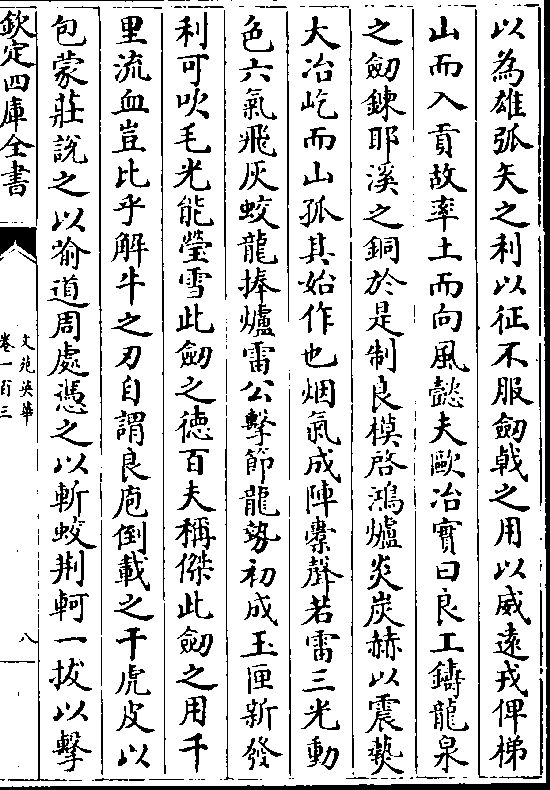 以為雄弧矢之利以征不服劒㦸之用以威遠戎俾梯
山而入貢故率土而向風懿夫歐冶實曰良工鑄龍泉
之劒鍊耶溪之銅於是制良模啓鴻爐炎炭赫以震爇
大冶屹而山孤其始作也烟氣成陣橐聲若雷三光動
色六氣飛灰蛟龍捧爐雷公擊節龍勢初成玉匣新發
利可吹毛光能瑩雪此劒之徳百夫稱傑此劒之用千
里流血豈比乎解牛之刃自謂良庖倒載之干虎皮以
包蒙莊說之以喻道周處憑之以斬蛟荆軻一拔以擊
欽定四庫全書
文苑英華
卷一百三
八